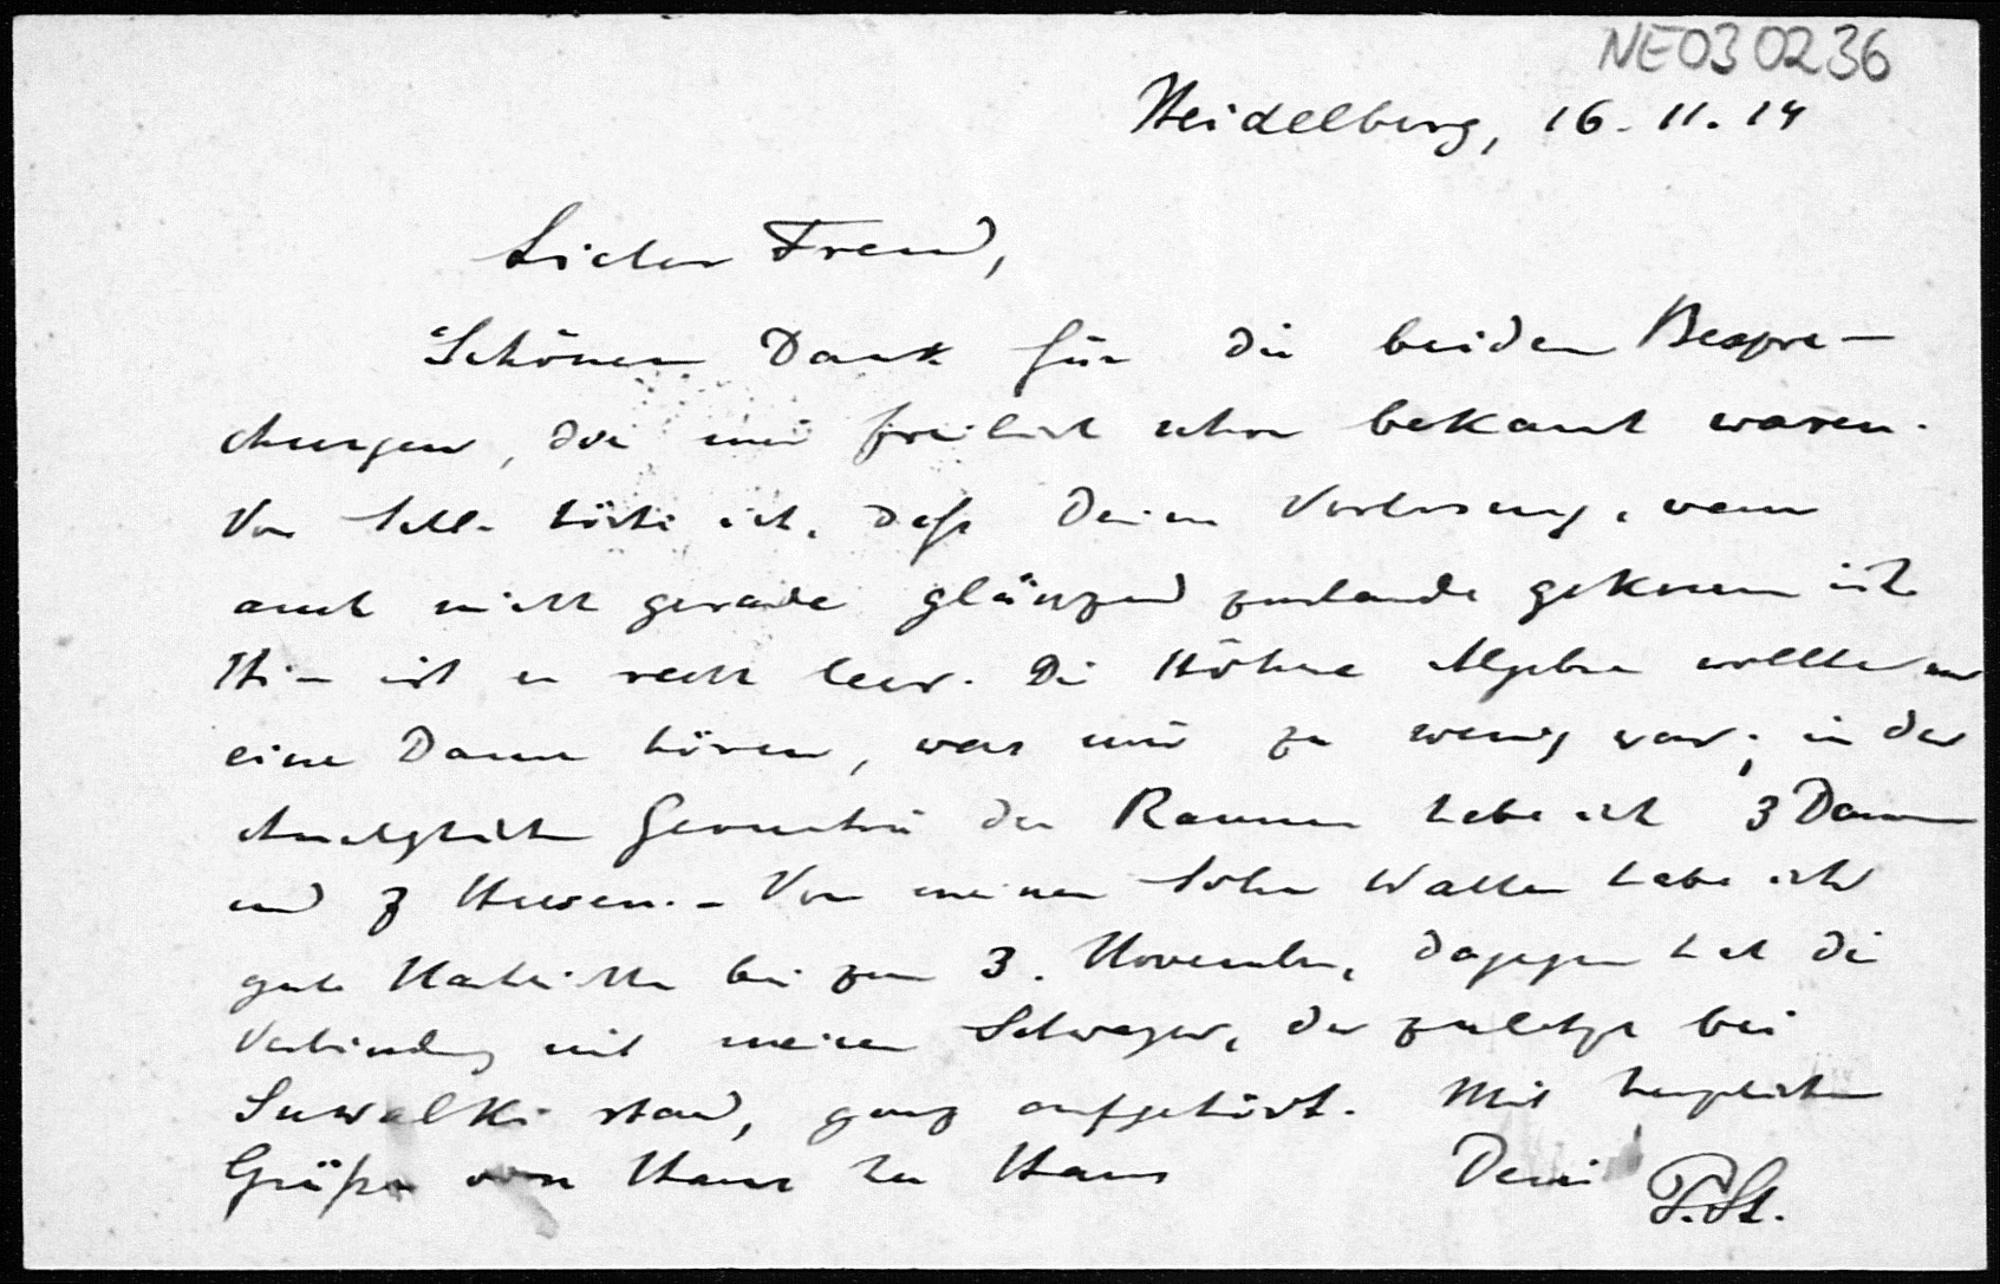 NE030236
Heidelberg, 16. 11. 14
Lieber Freund,
Schönen Dank für die beiden Bespre-
chungen, die mir freilich schon bekannt waren.
Von Sch. hörte ich, daß Deine Vorlesung, wenn
auch nicht gerade glänzend zustande gekommen ist.
Hier ist es recht leer. Die Höhere Algebra wollte nur
eine Dame hören, was mir zu wenig war; in der
Analytischen Geometrie des Raumes habe ich 3 Damen
und 3 Herren. – Von meinem Sohn Walter habe ich
gute Nachrichten bis zum 3. November, dagegen hat die
Verbindung mit meinem Schwager, der zuletzt bei
Suwalki stand, ganz aufgehört. Mit herzlichen
Grüßen von Haus zu Haus Dein P. St.